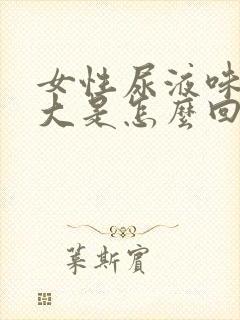 女性尿液味
大是怎麼回
葉斯賓